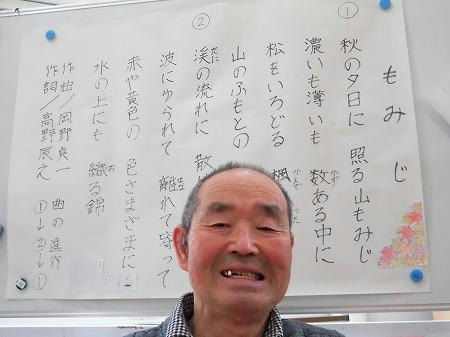 もみじ
①
秋の夕日に 照る山もみじ
濃いも薄いも 数ある中に
かず
松をいろどる 楓
かえで
つた
山のふもとの
②
渓の流れに 散
たに
波にゆられて 離れて寄って
はな
赤や黄色の 色さまざまに
水の上にも 織る錦
お
作詞/高野辰之 ①→②→①
作曲/岡野貞一 曲の進行